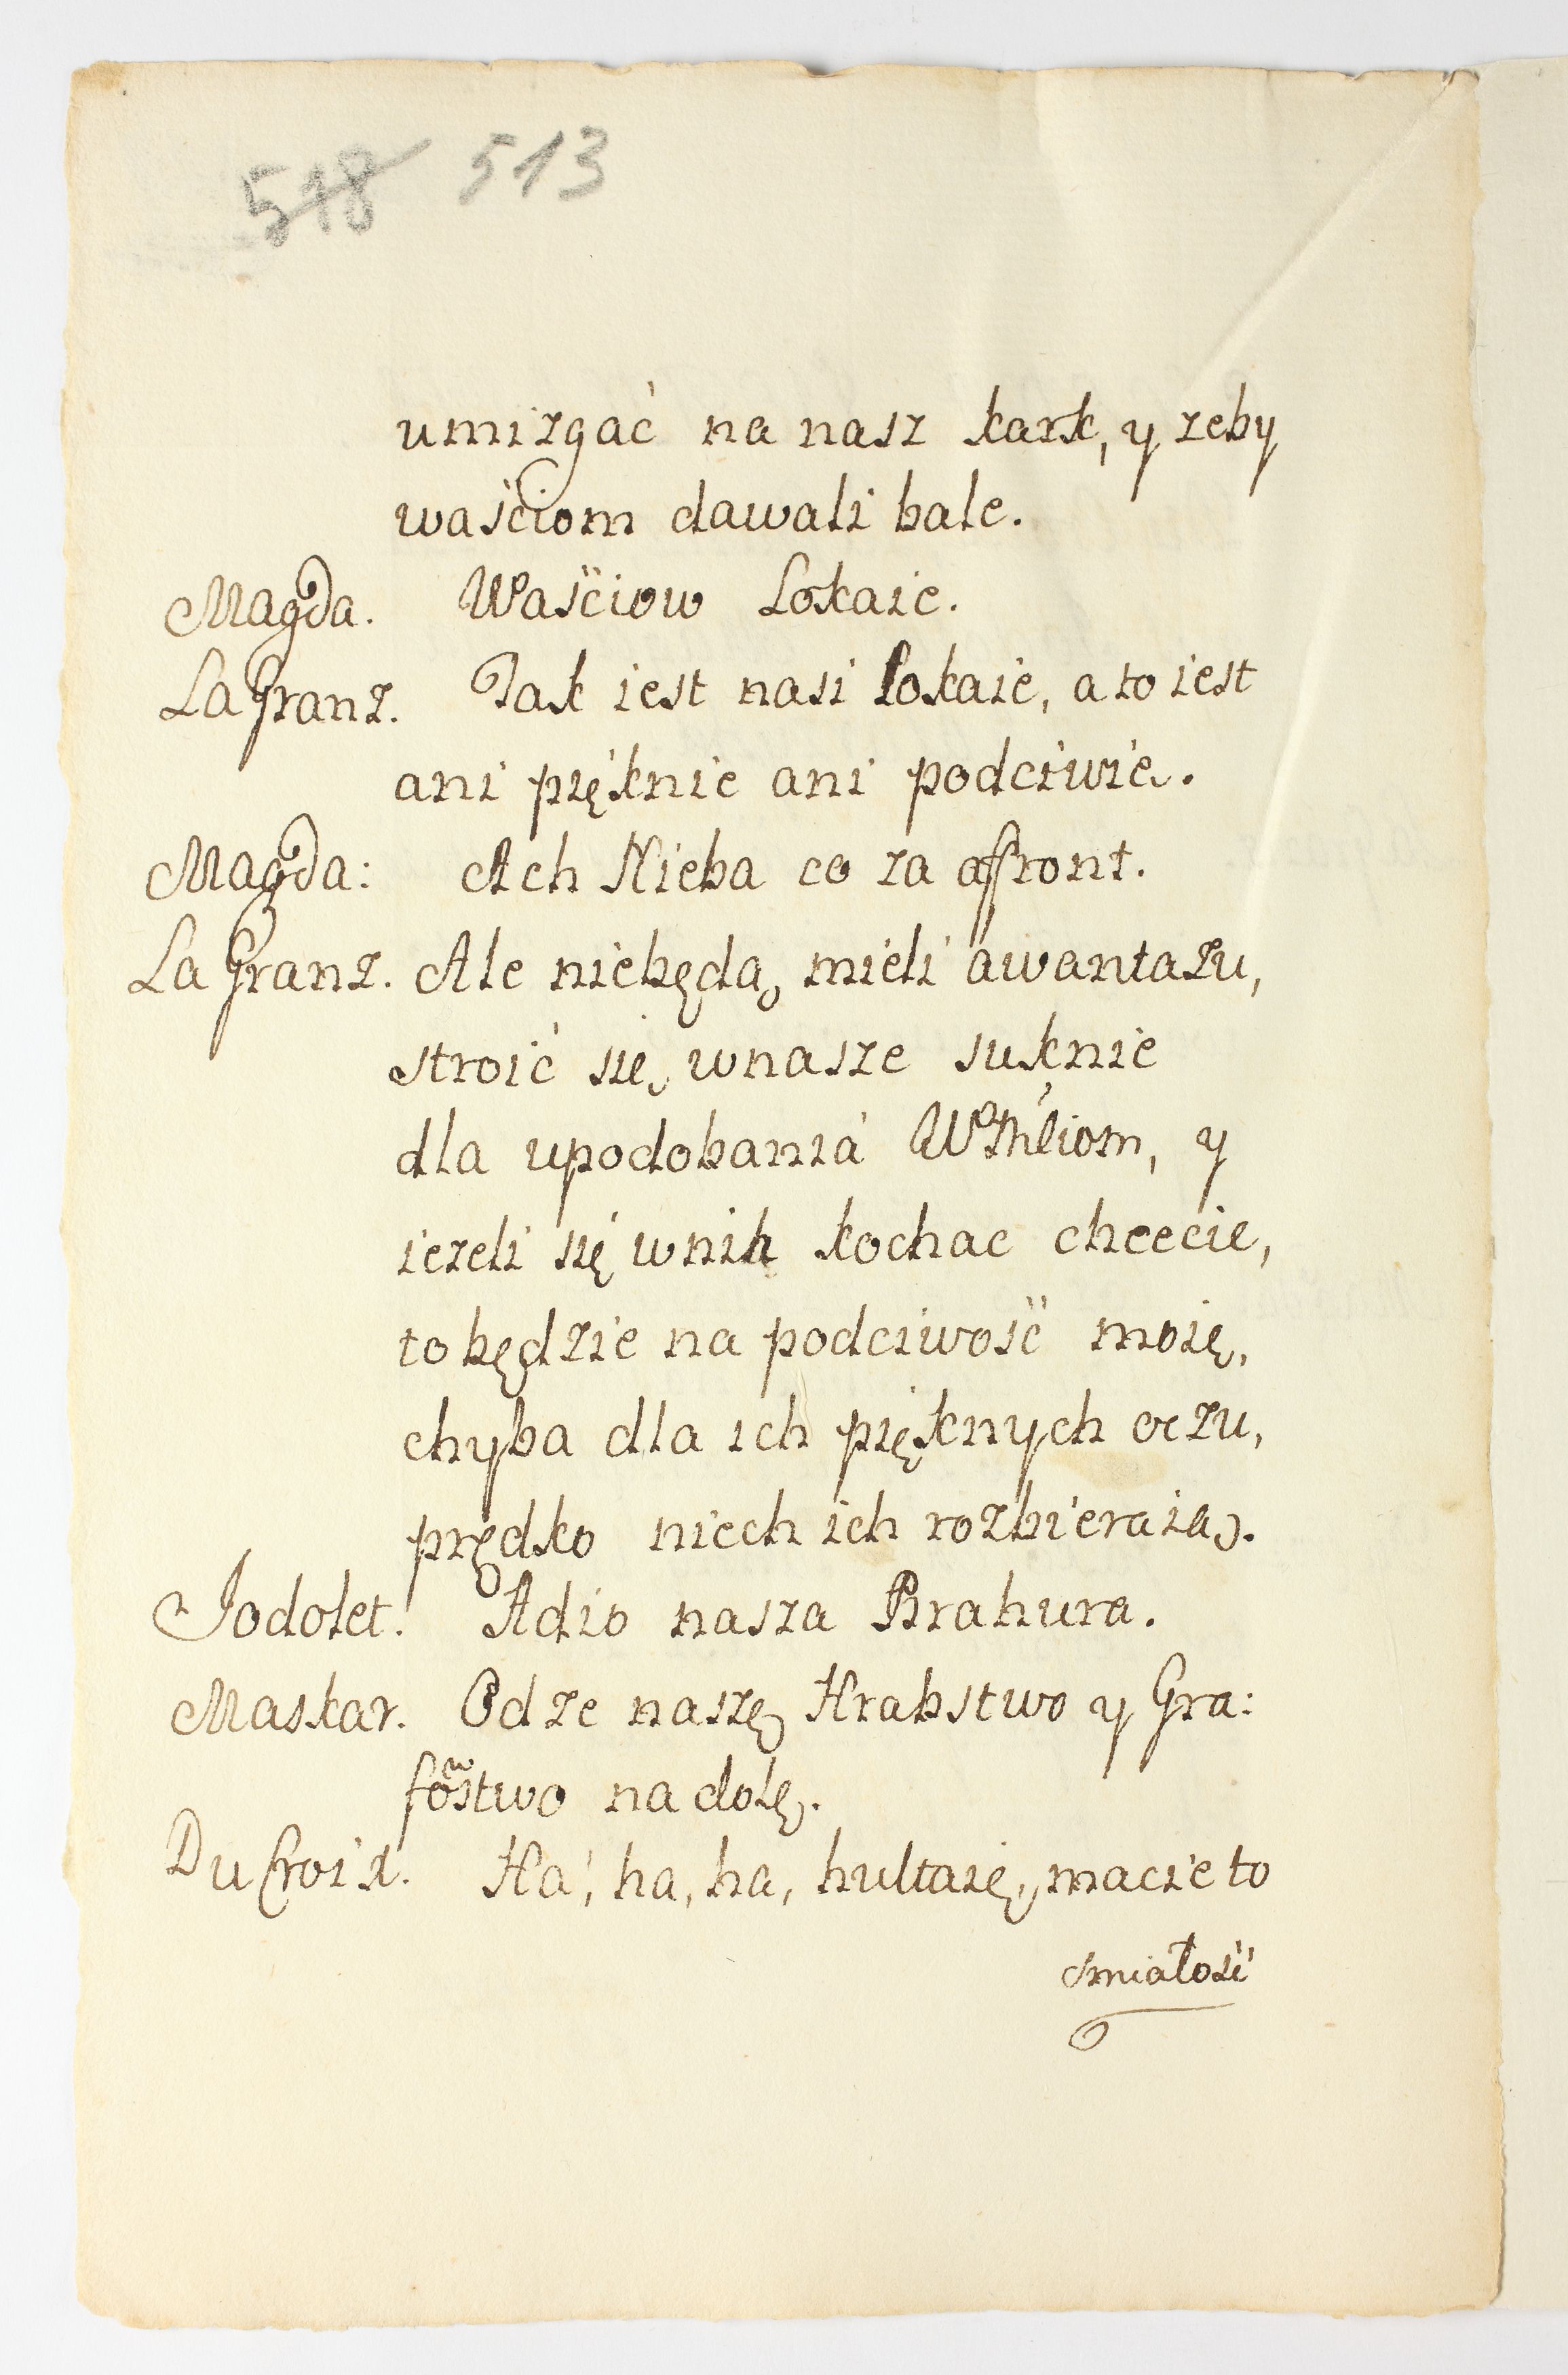 518 513
umizgać na nasz kark, y zeby
waściom dawali bale.
Magda. Waściow Lokaie.
La Granz. Tak iest nasi Lokaie, a to iest
ani pięknie ani podciwie.
Magda: Ach Nieba co za affront.
La Granz. Ale niebędą mieli awantazu,
stroić się wnasze suknie
dla upodobania WMściom, y
iezeli się wnih kochac chcecie,
to będzie na podciwość moię,
chyba dla ich pięknych oczu,
prędko niech ich rozbieraią.
Jodolet. Adio nasza Brahura.
Maskar. Odze naszę Hrabstwo y Gra:
fowstwo na dolę.
Du Croix. Ha, ha, ha, hultaię, macie to
smiałość